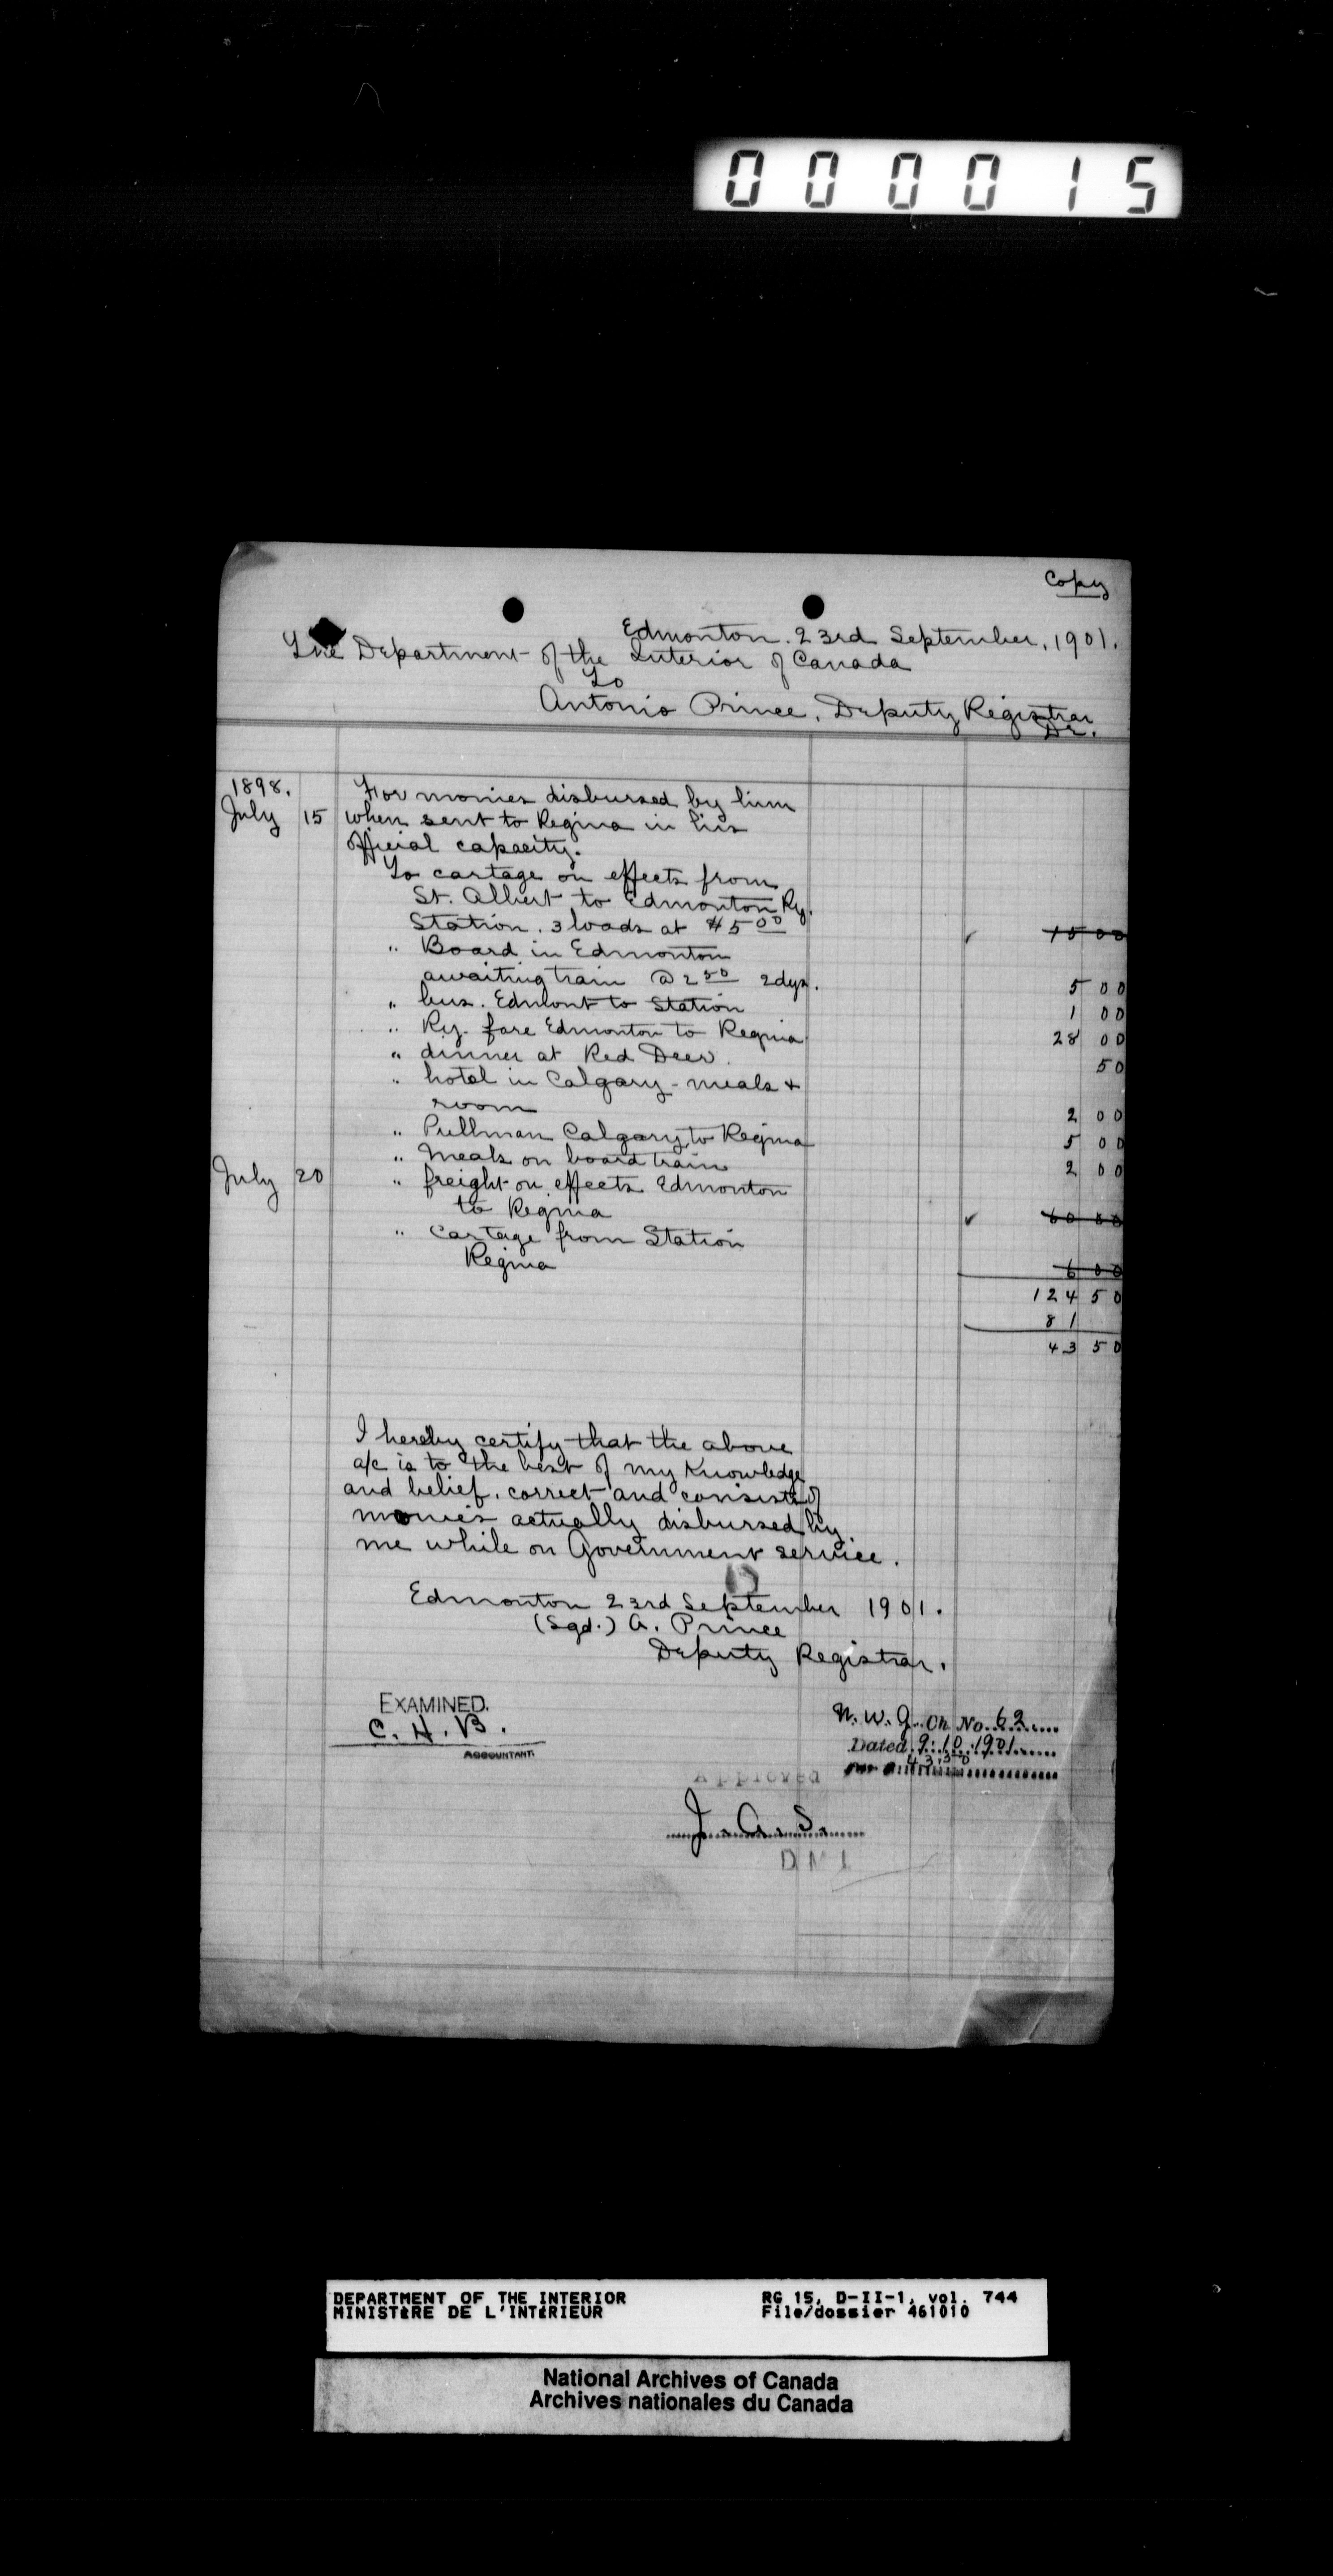 000015
Copy
Edmonton. 23rd September, 1901.
The Department of the Interior of Canada
To
Antonio Prince, Deputy Registrar
Dr.
1898.
For monies disbursed by him
July 15 when sent to Regina in his
official capacity.
To cartage on effects from
St. Albert to Edmonton Ry.
Station. 3 loads at $5 00 15 00
" Board in Edmonton
awaiting train @ 2 50 2 dys. 5 00
" bus. Edmont to Station 1 00
" Ry. fare Edmonton to Regina 28 00
" dinner at Red Deer. 50
" hotel in Calgary - meals &
room 2 00
" Pullman Calgary to Regina 5 00
" Meals on board train 2 00
July 20 " freight on effects Edmonton
to Regina 60 00
" Cartage from Station
Regina 6 00
124 50
81
43 50
I hereby certify that the above
a/c is to the best of my knowledge
and belief. correct and consists of
monies actually disbursed by
me while on Government service.
Edmonton 23rd September 1901.
(Sgd.) A. Prince
Deputy Registrar.
EXAMINED.
C. H. B.
ACCOUNTANT.
N. W. G. Ch No. 62
Dated 9.10.1901
43.50
Approved
J. A. S.
D M I
DEPARTMENT OF THE INTERIOR RG 15, D-II-1, vol. 744
MINISTÈRE DE L'INTÉRIEUR File/dossier 461010
National Archives of Canada
Archives nationales du Canada